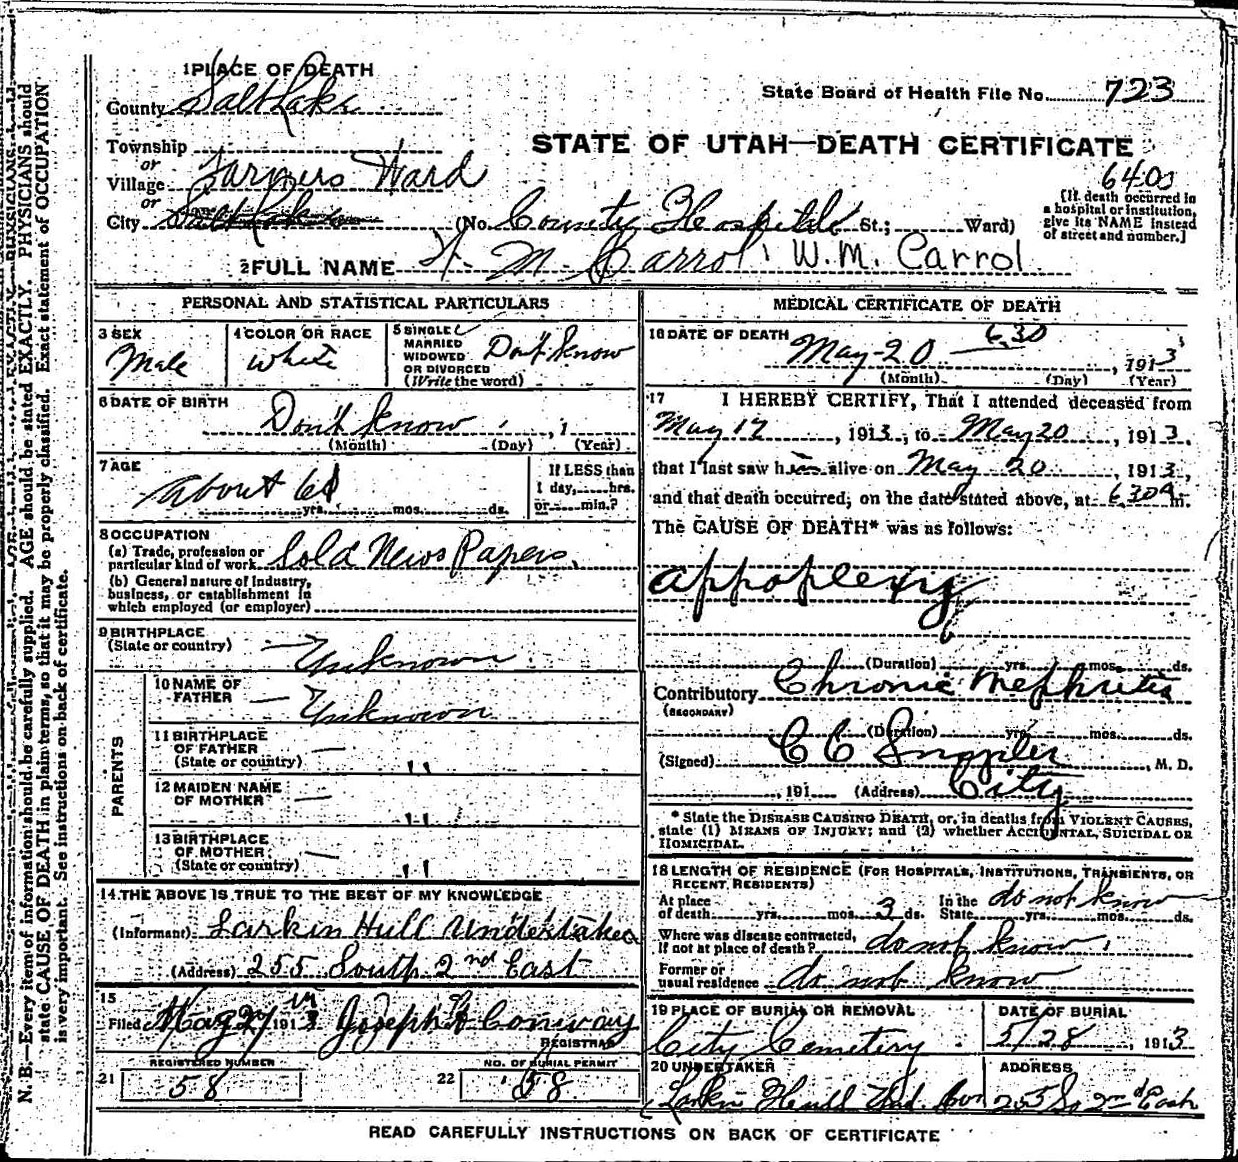 1 PLACE OF DEATH
County Salt Lake
State Board of Health File No. 723
STATE OF UTAH—DEATH CERTIFICATE
Township
or
Village Farmers Ward
or
City Salt Lake (No. County Hospital St.; Ward)
6400
[If death occurred in
a hospital or institution,
give its NAME instead
of street and number.]
2 FULL NAME W. M. Carrol W.M. Carrol
PERSONAL AND STATISTICAL PARTICULARS
3 SEX
Male
4 COLOR OR RACE
White
5 SINGLE
MARRIED
WIDOWED
OR DIVORCED
(Write the word)
Don't Know
6 DATE OF BIRTH
Don't Know , 1
(Month) (Day) (Year)
7 AGE
About 61
yrs. mos. ds.
If LESS than
1 day, hrs.
or min.?
8 OCCUPATION
(a) Trade, profession or
particular kind of work Sold News Papers.
(b) General nature of Industry,
business, or establishment in
which employed (or employer)
9 BIRTHPLACE
(State or country) Unknown
PARENTS
10 NAME OF
FATHER Unknown
11 BIRTHPLACE
OF FATHER
(State or country) "
12 MAIDEN NAME
OF MOTHER "
13 BIRTHPLACE
OF MOTHER
(State or country) "
14 THE ABOVE IS TRUE TO THE BEST OF MY KNOWLEDGE
(Informant) Larkin Hull Undertaker
(Address) 255 South 2nd East
15
Filed May 27th 1913 Joseph H Conway
REGISTRAR
REGISTERED NUMBER
21 58
NO. OF BURIAL PERMIT
22 58
MEDICAL CERTIFICATE OF DEATH
16 DATE OF DEATH 630
May 20 , 1913
(Month) (Day) (Year)
17 I HEREBY CERTIFY, That I attended deceased from
May 17 , 1913, to May 20 , 1913,
that I last saw him alive on May 20 , 1913,
and that death occurred, on the date stated above, at 630 A m.
The CAUSE OF DEATH* was as follows:
Appoplexy
(Duration) yrs. mos. ds.
Contributory Chronic Nephritis
(SECONDARY)
(Duration) yrs. mos. ds.
(Signed) C C , M. D.
, 191 (Address) City
* State the DISEASE CAUSING DEATH, or, in deaths from VIOLENT CAUSES,
state (1) MEANS OF INJURY; and (2) whether ACCIDENTAL, SUICIDAL OR
HOMICIDAL.
18 LENGTH OF RESIDENCE (FOR HOSPITALS, INSTITUTIONS, TRANSIENTS, OR
RECENT RESIDENTS)
At place
of death yrs. mos. 3 ds.
In the
State do not know yrs. mos. ds.
Where was disease contracted,
if not at place of death? do not know
Former or
usual residence do not know
19 PLACE OF BURIAL OR REMOVAL
City Cemetery
DATE OF BURIAL
5/28 , 1913
20 UNDERTAKER
Larkin Hull Und. Con
ADDRESS
255 So 2nd East
READ CAREFULLY INSTRUCTIONS ON BACK OF CERTIFICATE
N. B.—Every item of information should be carefully supplied. AGE should be stated EXACTLY. PHYSICIANS should
state CAUSE OF DEATH in plain terms, so that it may be properly classified. Exact statement of OCCUPATION
is very important. See instructions on back of certificate.